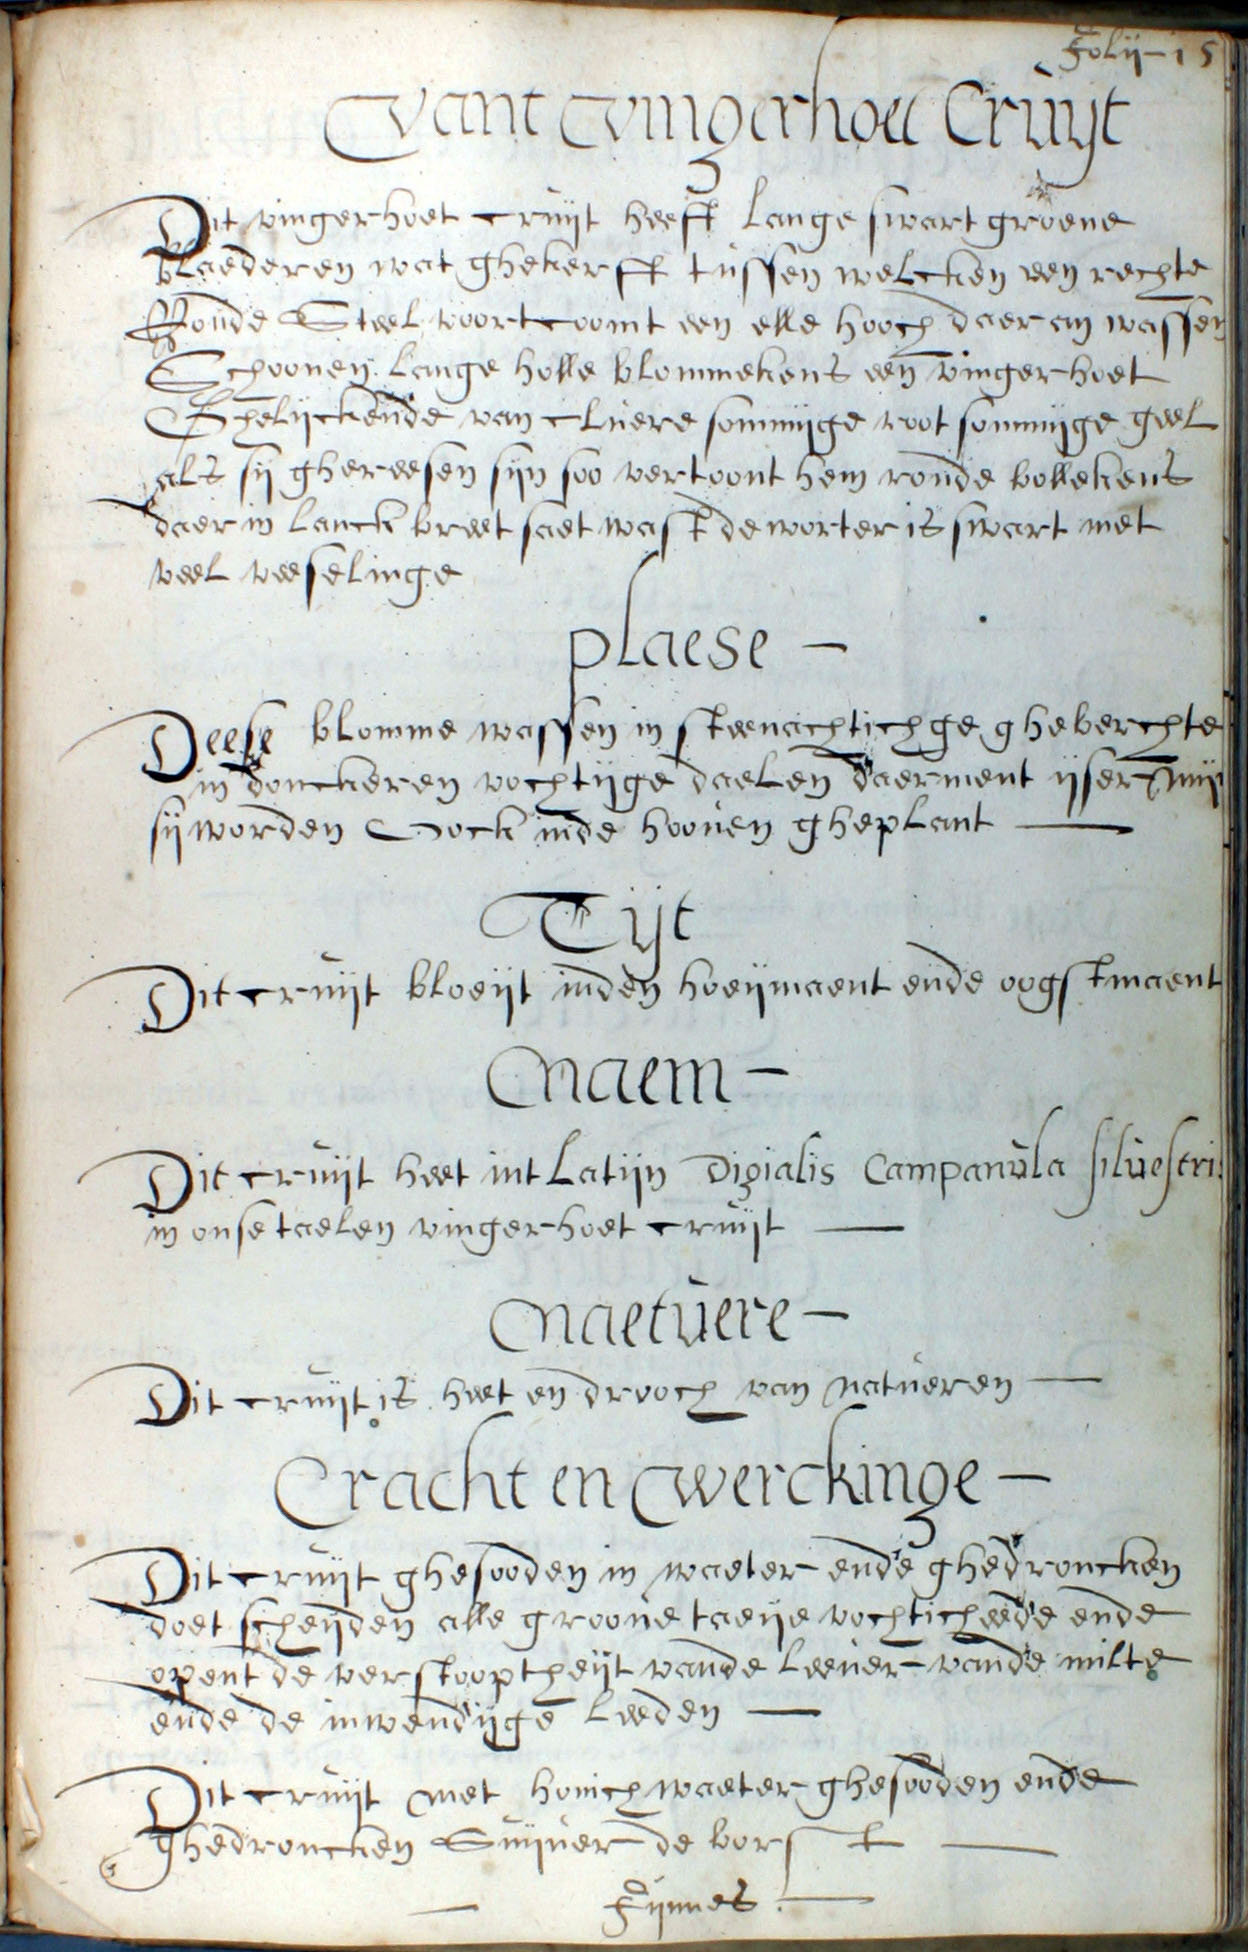 Folij 15
Vant Vingerhoet Cruijt
Dit vingerhoet cruijt heeft lange swart groene
blaederen wat ghekerft tussen welcken een rechte
Ronde Steel voort coomt een elle hooch daer an wassen
Schoonen lange holle blommekens een vingerhoet
Ghelijckende van cluere sommijge root sommijge geel
als sij gheresen sijn soo vertoont hem ronde bollekens
daer in lanck breet saet wast de worter is swart met
veel veeselinge
plaese –
Deese blomme wassen in steenachtichge gheberchte
in donckeren vochtijge daelen daerment ijser
sij worden Oock inde hooven gheplant —
Tijt
Dit cruijt bloeijt inden hoeijmaent ende oogstmaent
Naem –
Dit cruijt heet int Latijn Digialis Campanula silvestris
in onse taelen vingerhoet cruijt —
Naetuere –
Dit cruijt is heet en drooch van natueren —
Cracht en Werckinge –
Dit cruijt ghesooden in waeter ende ghedroncken
doet scheijden alle groove taeije vochticheede ende
opent de verstooptheijt vande leever vande milte
ende de inwendijge leeden —
Dit cruijt met honich waeter ghesooden ende
ghedroncken Suijver de borst —
Fijnnes